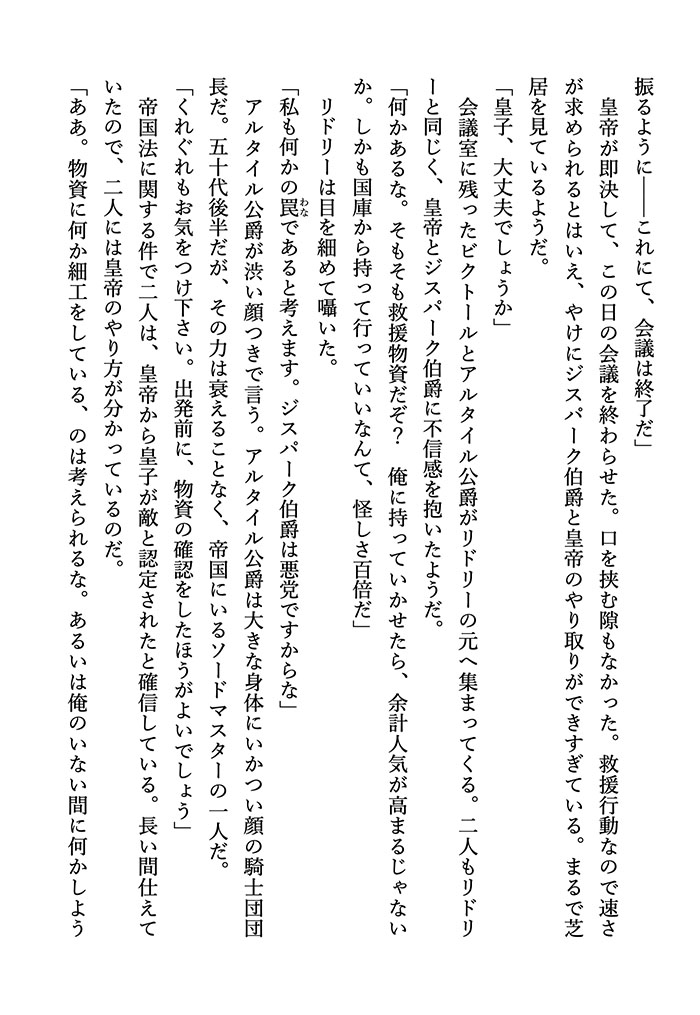 振るように――これにて、会議は終了だ」
　皇帝が即決して、この日の会議を終わらせた。口を挟む隙もなかった。救援行動なので速さ
が求められるとはいえ、やけにジスパーク伯爵と皇帝のやり取りができすぎている。まるで芝
居を見ているようだ。
「皇子、大丈夫でしょうか」
　会議室に残ったビクトールとアルタイル公爵がリドリーの元へ集まってくる。二人もリドリ
ーと同じく、皇帝とジスパーク伯爵に不信感を抱いたようだ。
「何かあるな。そもそも救援物資だぞ？　俺に持っていかせたら、余計人気が高まるじゃない
か。しかも国庫から持って行っていいなんて、怪しさ百倍だ」
　リドリーは目を細めて囁いた。
「私も何かの罠わなであると考えます。ジスパーク伯爵は悪党ですからな」
　アルタイル公爵が渋い顔つきで言う。アルタイル公爵は大きな身体にいかつい顔の騎士団団
長だ。五十代後半だが、その力は衰えることなく、帝国にいるソードマスターの一人だ。
「くれぐれもお気をつけ下さい。出発前に、物資の確認をしたほうがよいでしょう」
　帝国法に関する件で二人は、皇帝から皇子が敵と認定されたと確信している。長い間仕えて
いたので、二人には皇帝のやり方が分かっているのだ。
「ああ。物資に何か細工をしている、のは考えられるな。あるいは俺のいない間に何かしよう